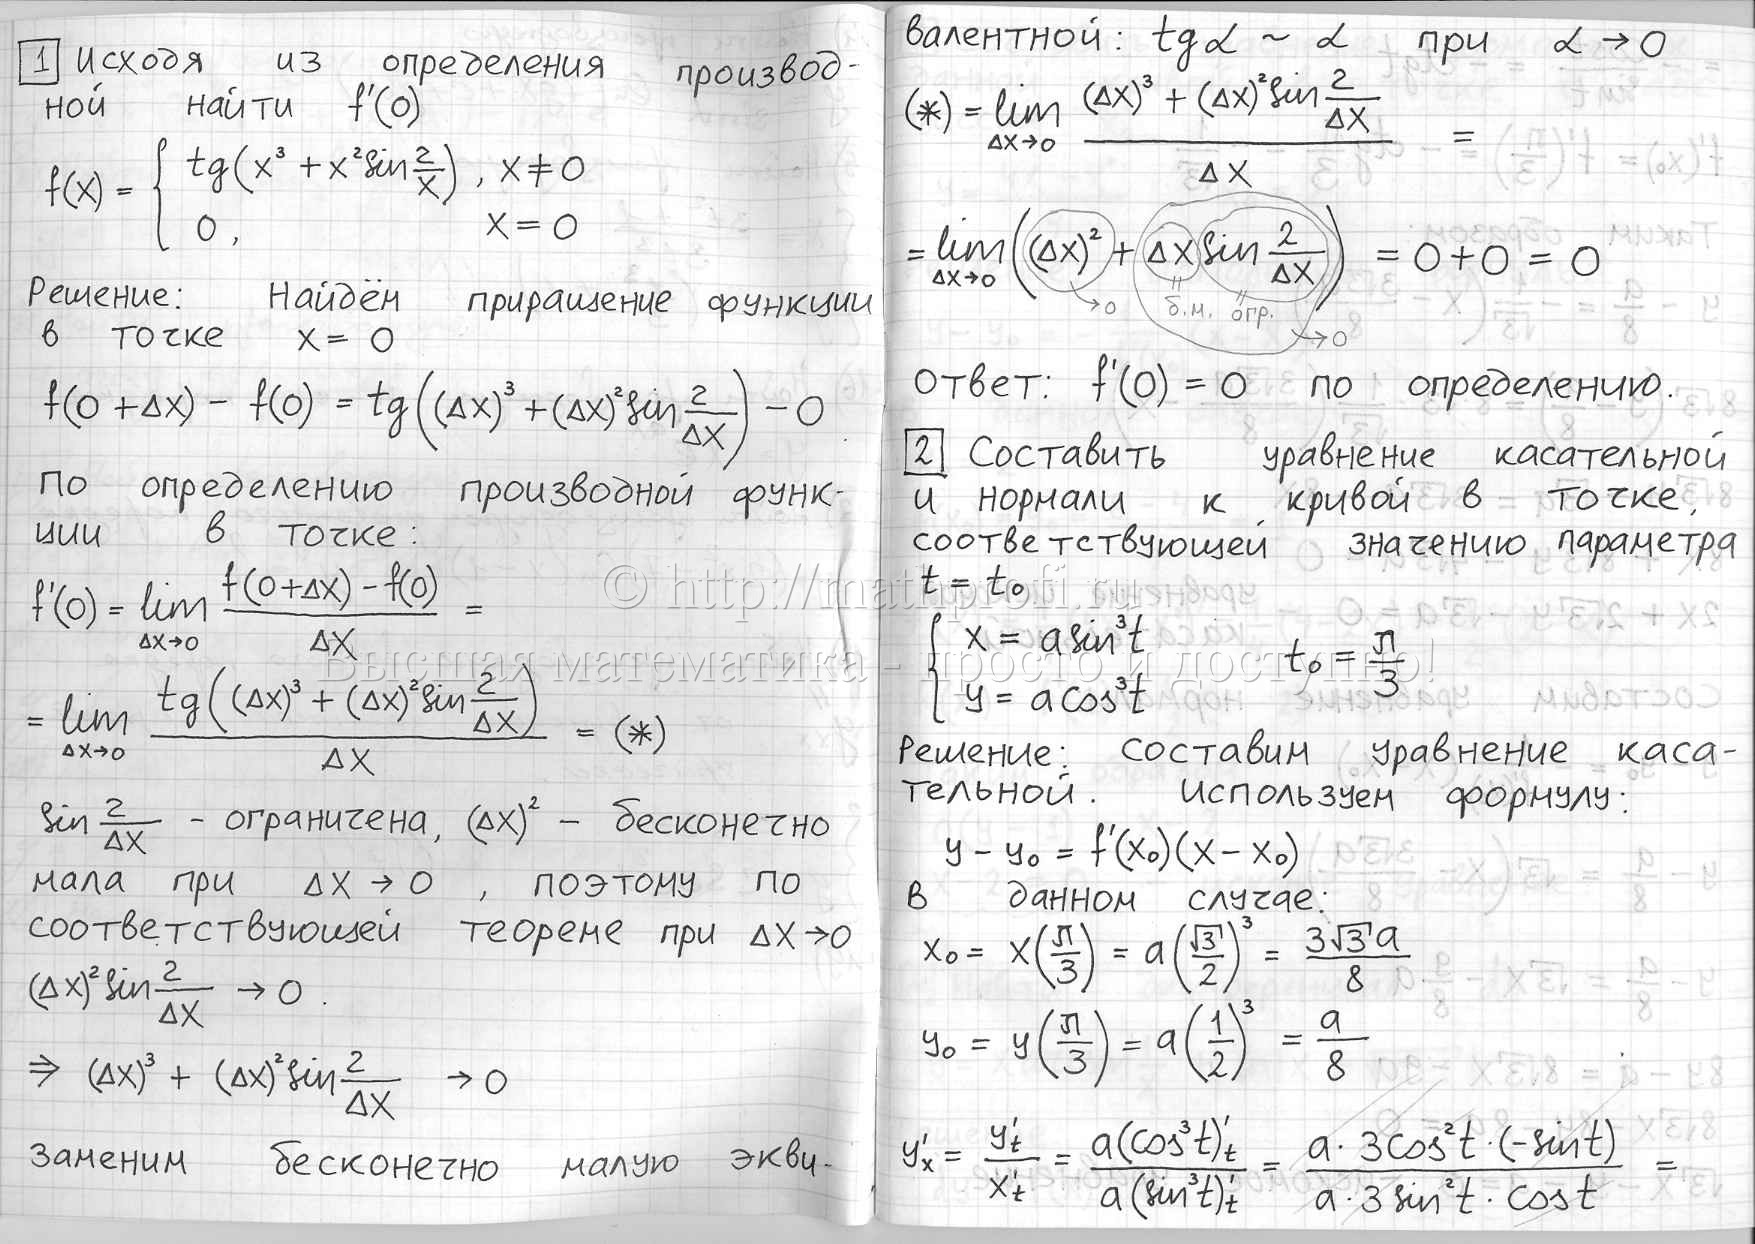 1 Исходя из определения производ-
ной найти f'(0)
f(x) = { tg(x³ + x² sin 2/x), x ≠ 0
0, x = 0
Решение: Найдём приращение функции
в точке x = 0
f(0 + Δx) - f(0) = tg((Δx)³ + (Δx)² sin 2/Δx) - 0
По определению производной функ-
ции в точке:
f'(0) = lim Δx→0 (f(0+Δx) - f(0))/Δx =
= lim Δx→0 tg((Δx)³ + (Δx)² sin 2/Δx)/Δx = (*)
sin 2/Δx - ограничена, (Δx)² - бесконечно
мала при Δx → 0, поэтому по
соответствующей теореме при Δx→0
(Δx)² sin 2/Δx → 0.
⇒ (Δx)³ + (Δx)² sin 2/Δx → 0
Заменим бесконечно малую экви-
валентной: tg α ~ α при α → 0
(*) = lim Δx→0 ((Δx)³ + (Δx)² sin 2/Δx)/Δx =
= lim Δx→0 ((Δx)² + Δx sin 2/Δx) = 0 + 0 = 0
→0 б.м. огр. →0
Ответ: f'(0) = 0 по определению.
2 Составить уравнение касательной
и нормали к кривой в точке,
соответствующей значению параметра
t = t₀
{ x = a sin³t
y = a cos³t
t₀ = π/3
Решение: составим уравнение каса-
тельной. Используем формулу:
y - y₀ = f'(x₀)(x - x₀)
В данном случае:
x₀ = x(π/3) = a(√3/2)³ = 3√3a/8
y₀ = y(π/3) = a(1/2)³ = a/8
y'ₓ = y'ₜ/x'ₜ = a(cos³t)'ₜ/a(sin³t)'ₜ = a·3cos²t·(-sin t)/a·3sin²t·cos t =
© http://mathprofi.ru
Высшая математика - просто и доступно!